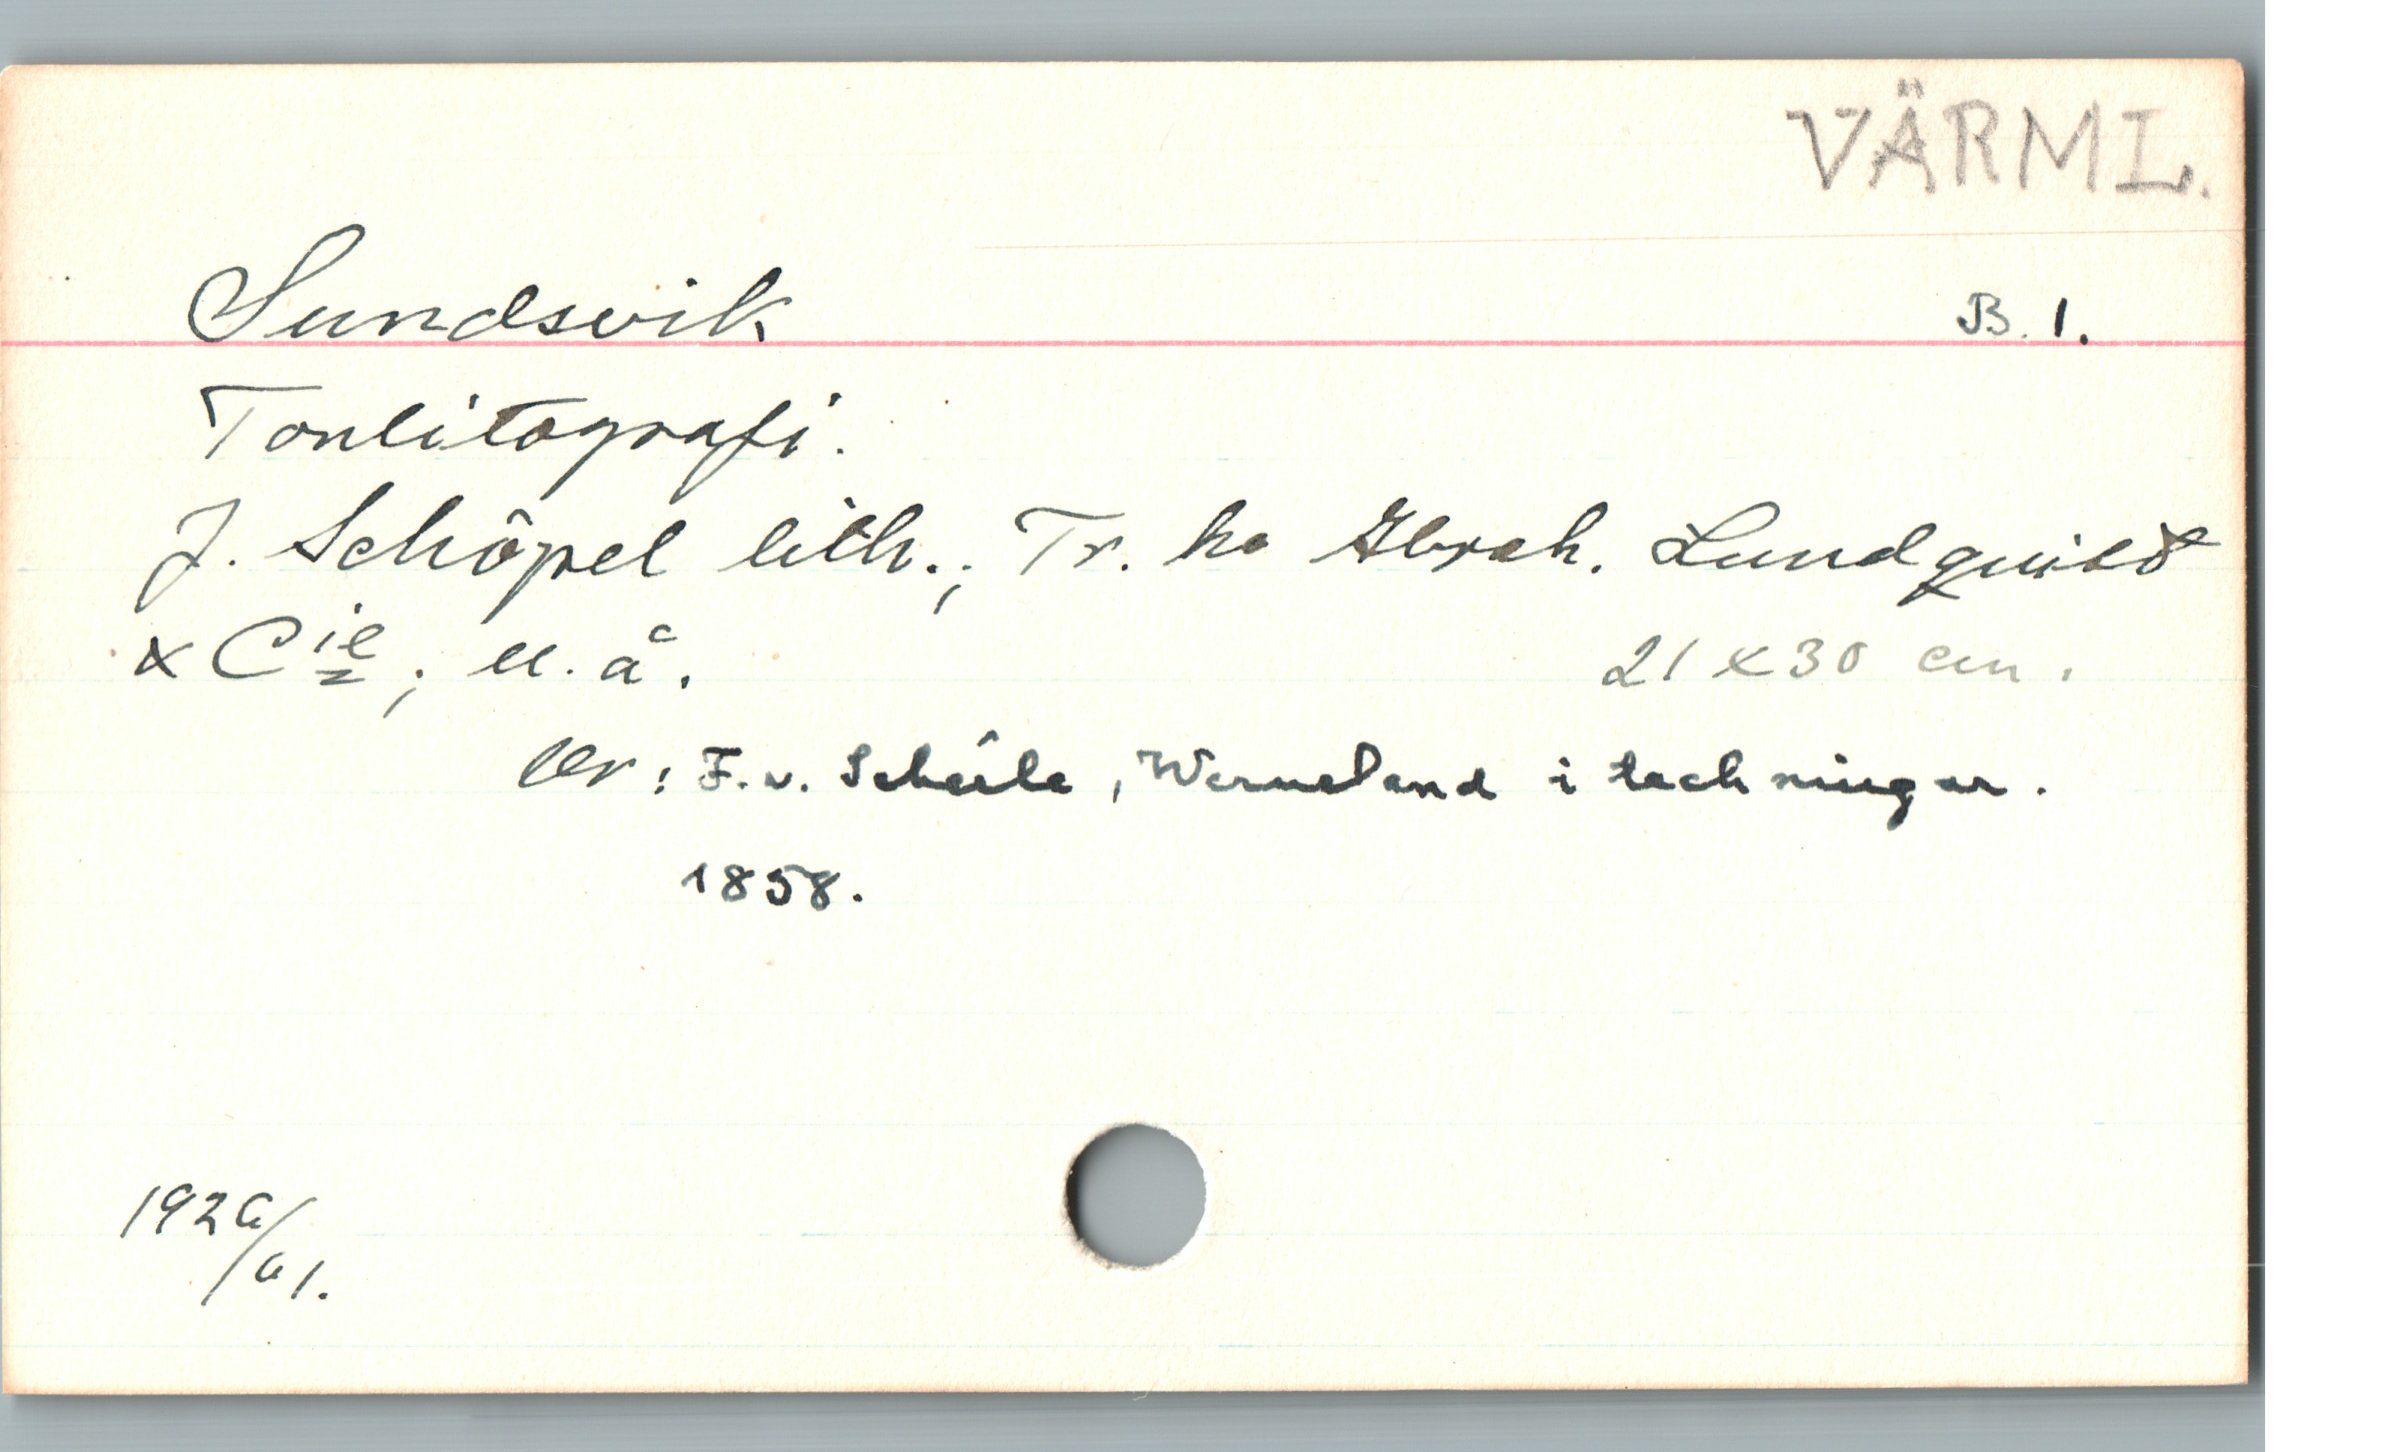 VÄRML.
Sundsvik B. 1.
Tonlitografi.
J. Schöpel lith.; Tr. ho Abrah. Lundquist
& Cie; u. å. 21 x 30 cm.
Ur: F. v. Scheele, Wermeland i teckningar.
1858.